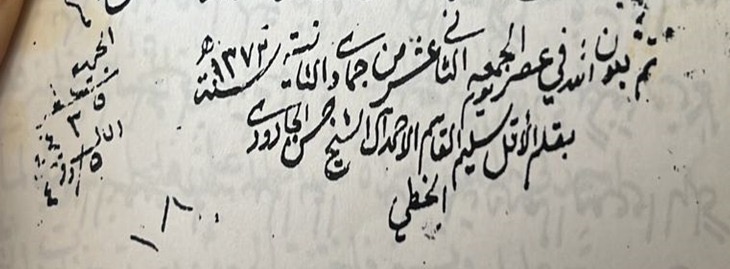 تم بعون الله في عصر يوم الجمعه الثاني عشر من جمادى الثانية سنة ١٣٧٣ هـ
بقلم الأقل سليم القاسم الاحمد آل الشيخ حسن الجارودي
الخطي